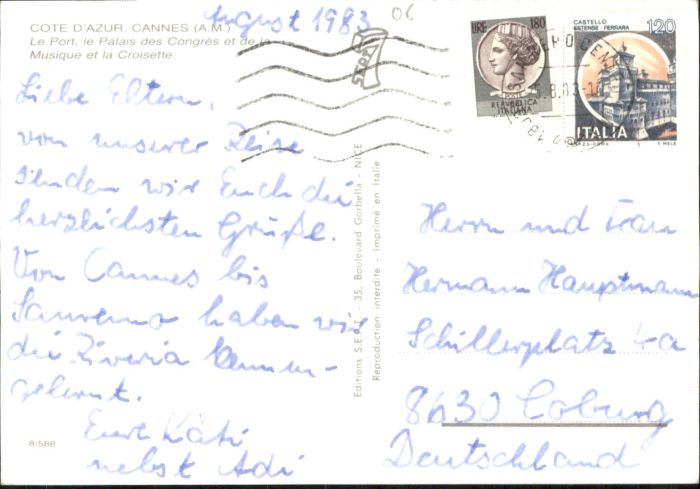 COTE D'AZUR. CANNES (A.M.)
Le Port, le Palais des Congrès et de la
Musique et la Croisette.
August 1983
06
LIRE 180
REPVBBLICA
ITALIANA
CASTELLO
ESTENSE - FERRARA
120
ITALIA
I.P.Z.S.-ROMA
Liebe Eltern,
von unserer Reise
senden wir Euch die
herzlichsten Grüße.
Von Cannes bis
Sanremo haben wir
die Riveria kennen-
gelernt.
Eure Käti
nebst Adi
8/588
Editions S.E.P.T. - 35, Boulevard Gorbella - NICE
Reproduction interdite - Imprimé en Italie
Herrn und Frau
Hermann Hauptmann
Schillerplatz 4a
8630 Coburg
Deutschland